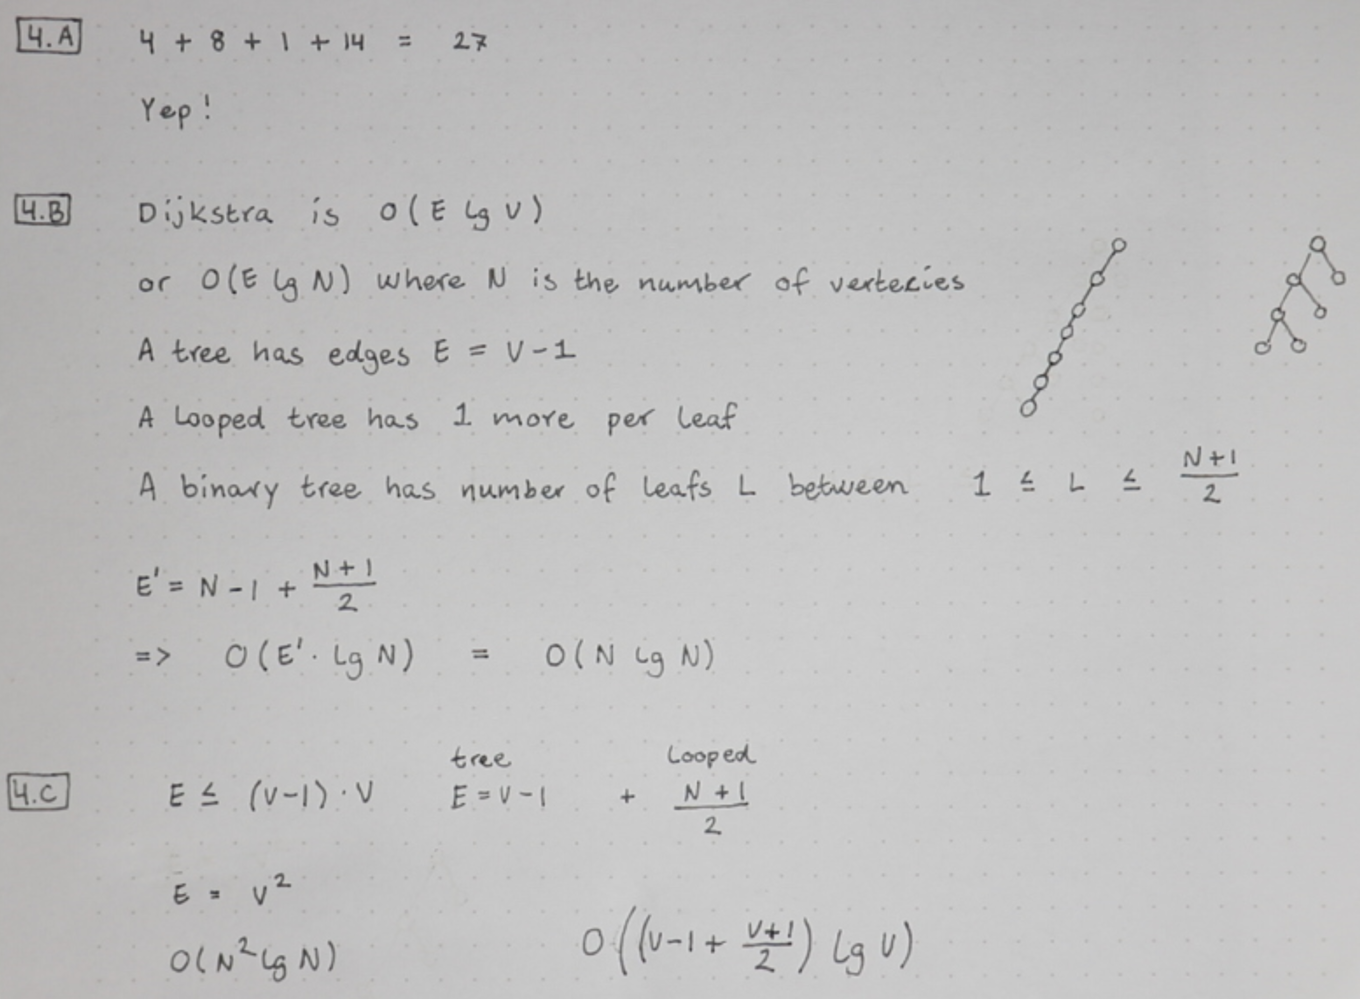 4.A 4 + 8 + 1 + 14 = 27
Yep!
4.B Dijkstra is O(E lg V)
or O(E lg N) where N is the number of vertecies
A tree has edges E = V - 1
A Looped tree has 1 more per leaf
A binary tree has number of leafs L between 1 ≤ L ≤ (N+1)/2
E' = N - 1 + (N+1)/2
=> O(E' · lg N) = O(N lg N)
tree Looped
4.C E ≤ (V-1) · V E = V - 1 + (N+1)/2
E = V²
O(N² lg N) O((V-1 + (V+1)/2) lg V)